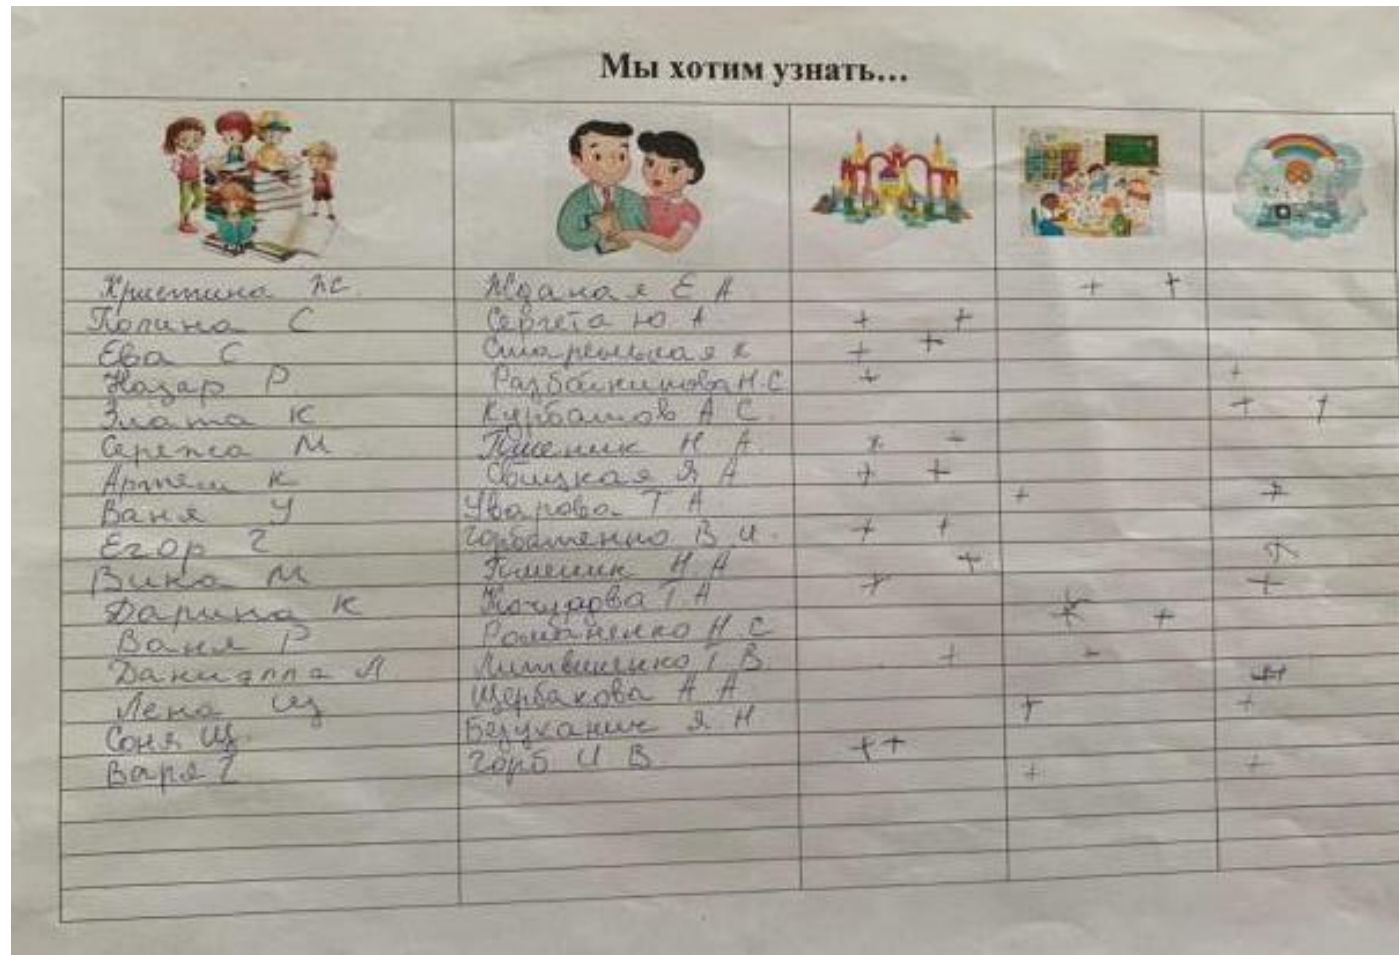 Мы хотим узнать...
Кристина Ж Ждана Е А + +
Полина С Сергета Ю А + +
Ева С К + +
Назар Р Н.С + +
Злата К Курбатов А С. + +
Сережа М Пшеник Н. А. + +
Артем К Свицкая Я А + +
Ваня У Уварова Т А + +
Егор Г Горбатенко В И. + +
Вика М Пшеник Н. А + +
Дарина К Кочурова Т А + +
Ваня Р Романенко Н С + +
Даниэлла Л Литвиненко Т В. + +
Лена Щ Щербакова А А ++
Соня Щ. Я Н + +
Варя Г Горб И В ++
+ +